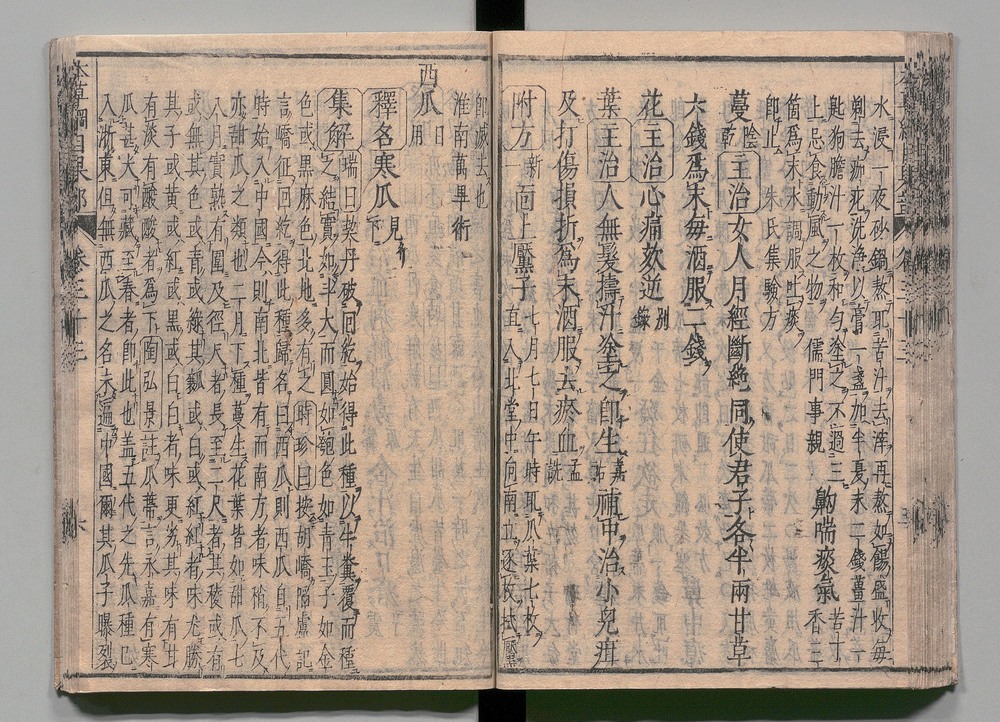 水浸一夜砂鍋熬取苦汁去滓再熬如餳盛收每
剃去痂死洗淨以膏一盞加半夏末二錢薑汁一
匙狗膽汁一枚和勻塗之不過三
上忌食動風之物 儒門事親 齁喘痰氣 苦丁香三
箇爲末水調服吐痰
卽止 朱氏集驗方
蔓 陰乾 主治 女人月經斷絶同使君子各半兩甘草
六錢爲末每酒服二錢
花 主治 心痛欬逆 別錄
葉 主治 人無髮擣汁塗之卽生 嘉祐 補中治小兒疳
及打傷損折爲末酒服去瘀血 孟詵
附方 新一 面上黶子 七月七日午時取瓜葉七枚
直入北堂中向南立逐枚拭黶
卽滅去也
淮南萬畢術
西瓜 日用
釋名 寒瓜 見下
集解 瑞曰契丹破回紇始得此種以牛糞覆而種
之結實如斗大而圓如匏色如青玉子如金
色或黑麻色北地多有之 時珍曰按胡嶠陷虜記
言嶠征回紇得此種歸名曰西瓜則西瓜自五代
時始入中國今則南北皆有而南方者味稍不及
亦甜瓜之類也二月下種蔓生花葉皆如甜瓜七
八月實熟有圍及徑尺者長至二尺者其稜或有
或無其色或青或綠其瓤或白或紅紅者味尤勝
其子或黃或紅或黑或白白者味更劣其味有甘
有淡有酸酸者爲下陶弘景註瓜蒂言永嘉有寒
瓜甚大可藏至春者卽此也蓋五代之先瓜種已
入浙東但無西瓜之名未遍中國爾其瓜子曝裂